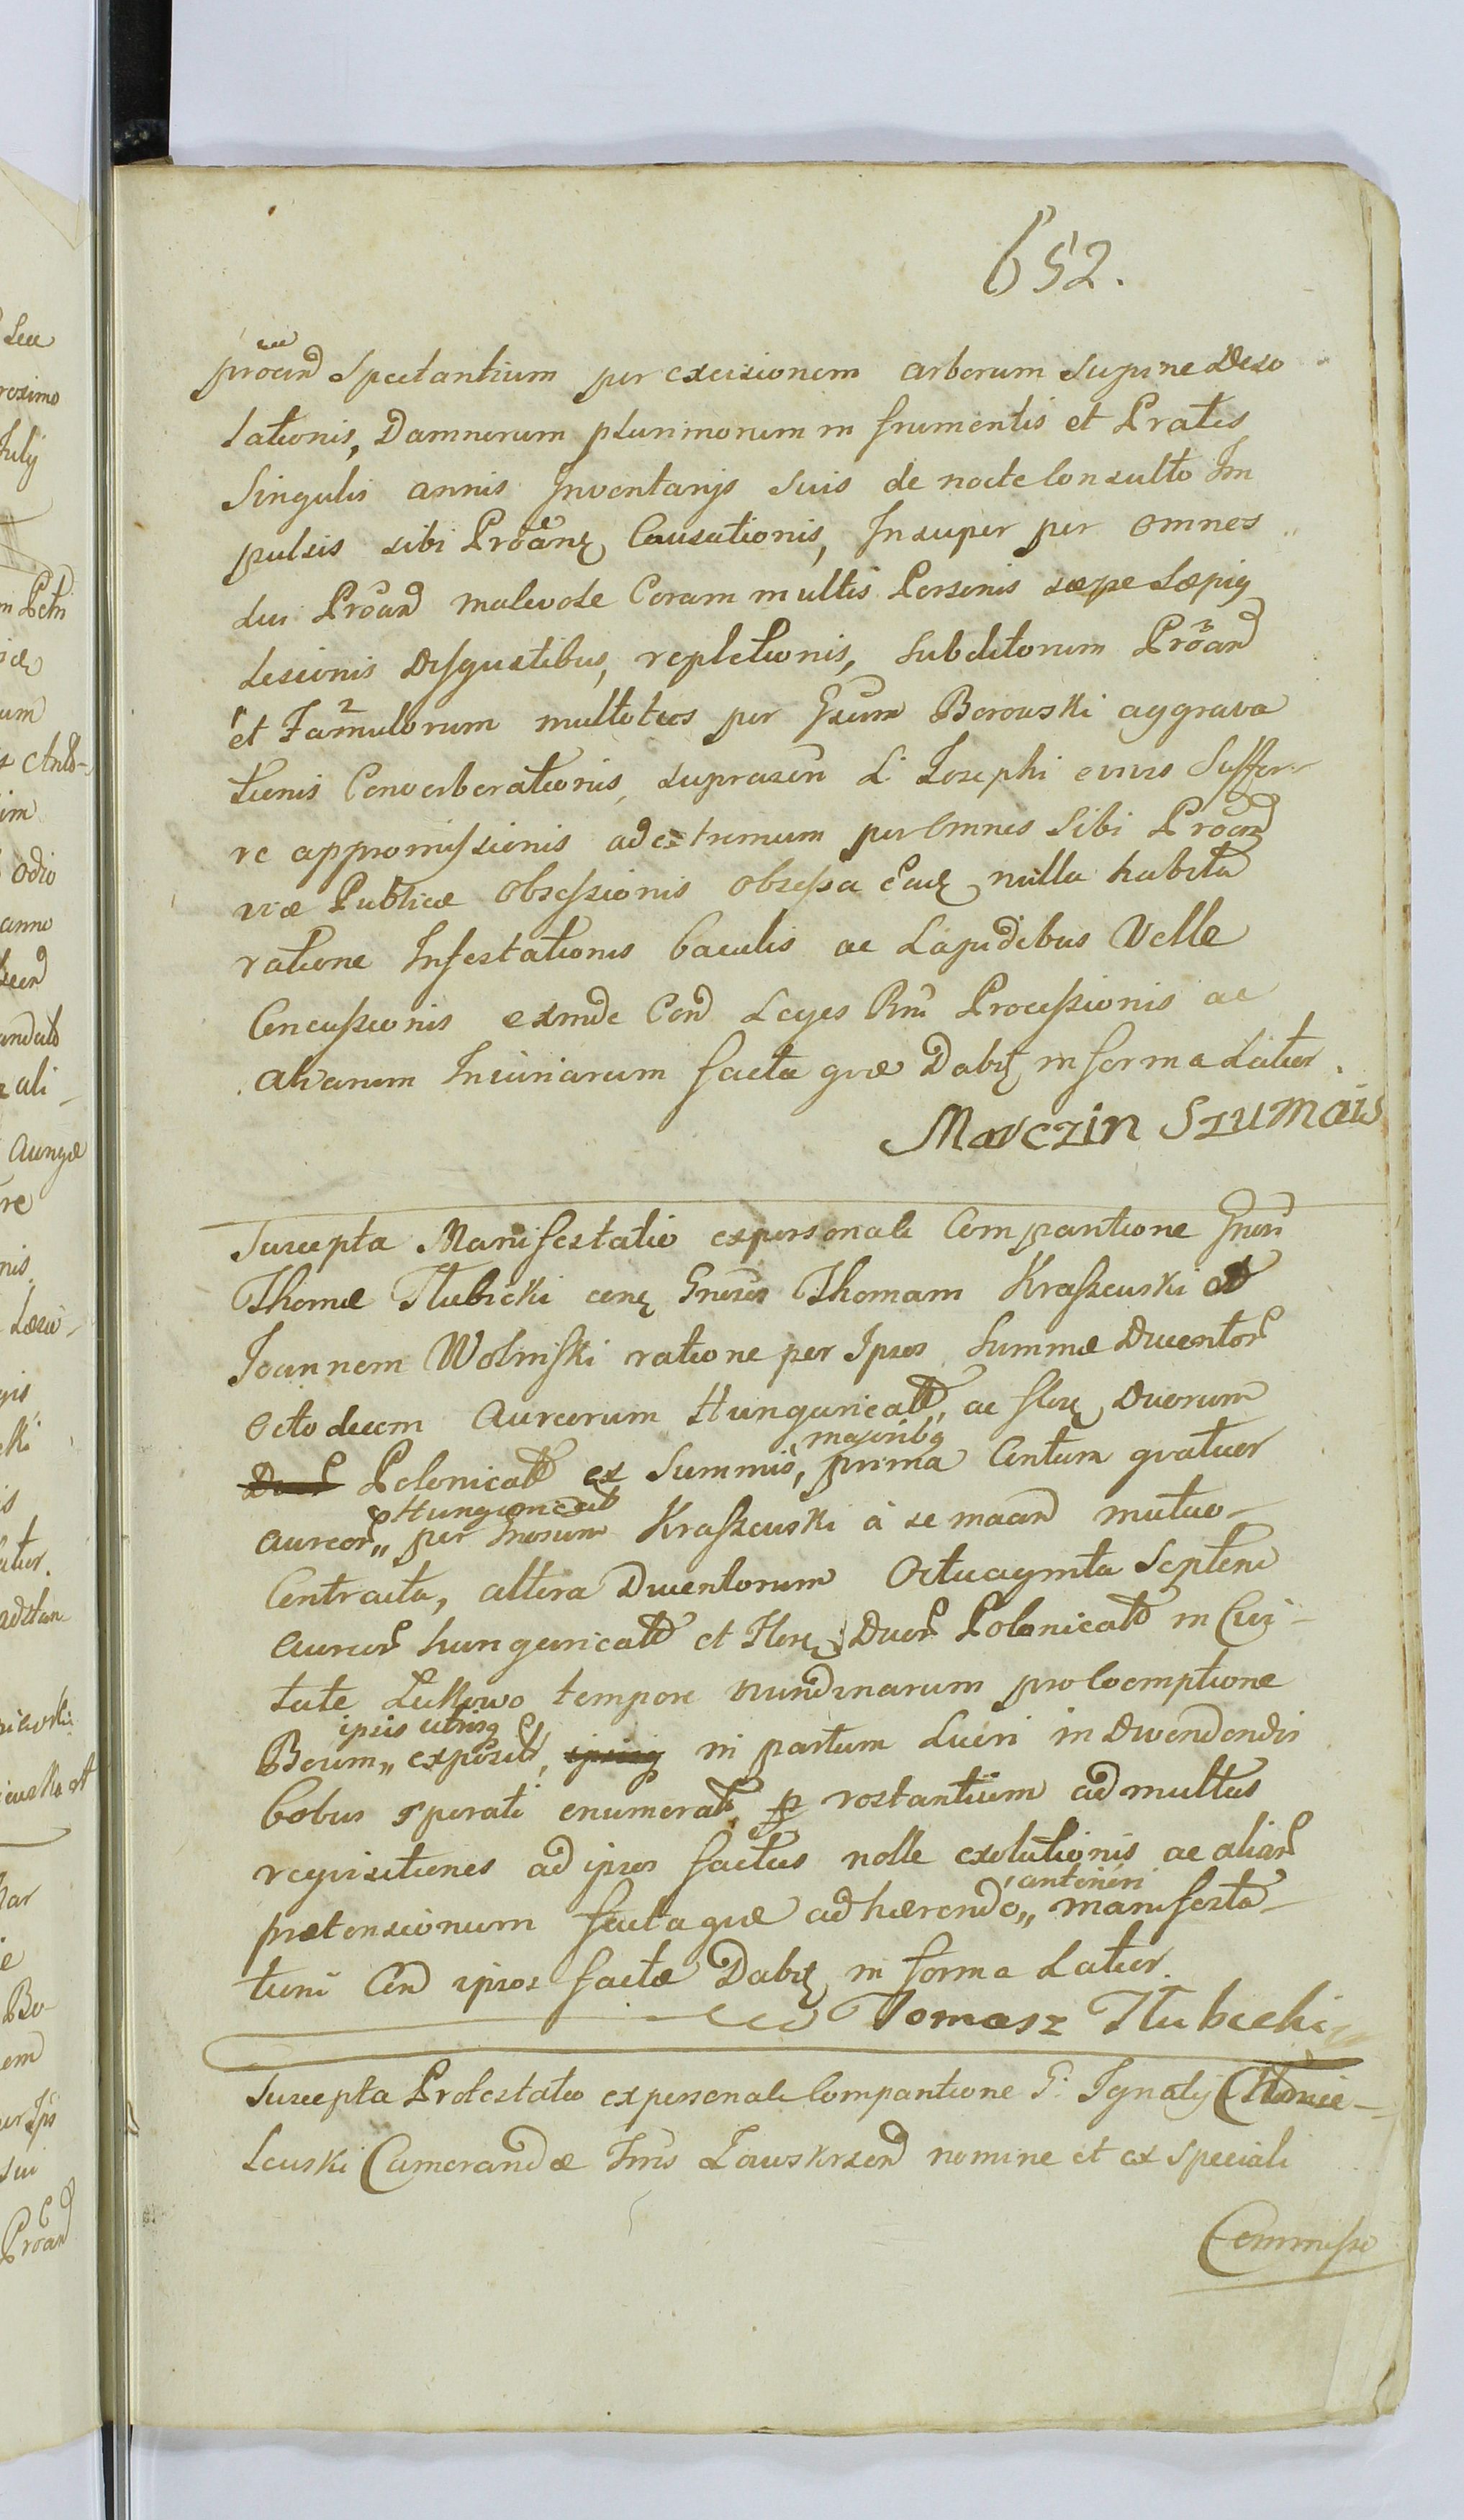 652.
proand Spectantium per excisionem arborum Supine Deso
lationis, Damnorum plurimorum in frumentis et Pratis
Singulis annis Inventarijs Suis de nocte Consulto Im
pulsis sibi Proanẽ Causationis, Insuper per omnes
dui Proand malevole Coram multis Personis sæpe Sæpiq
lesionis Disgustibus, repletionis, Subditorum Proand
et Famulorum multoties per Gsum Borowski aggrava
tionis Converberationis, suprascrin L. Josephi ensis Suffer
re appromissionis ad extremum per Omnes Sibi Proand
viæ Publicæ Obsessionis Obsessa Eaq nulla habita
ratione Infestationis baculis ac Lapidibus Velle
Concussionis exinde Cond Leges Rni Processionis ac
aliarum Iniuriarum facta quæ Dabit in forma Latior.
Marczin Szumais
Suscepta Manifestatio ex personali Comparitione Gnosi
Thomæ Tłubicki cenq Gnosos Thomam Kraszewski et
Joannem Wolinski ratione per Ipsos Summæ Ducentor
Octodecem Aureorum Hungaricald, ac flor Duorum
Duor Polonicald ex Summis, majoribq prima Centum quatuor
aureor„ Hungaricald per Gnosum Kraszewski à se maand mutuo
Contracta, altera Ducentorum Octuaginta Septem
Aureor hungaricald et Flor Duor Polonicald in Civi-
tate Łukowo tempore nundinarum pro Coemptione
Boum„ ipsis utrisq exposit, ipsisq in partem Lucri in Divendendis
bobus sperati enumerat, p restantium ad multas
requisitiones ad ipsos factas nolle exolutionis ac aliar
prætensionum facta quæ adhærendo„ anteriori manifesta-
tioni Cond ipsos factæ Dabit in forma Latior.
Tomasz Tłubicki
Suscepta Protestatio ex personali Comparitione G. Ignatij Chmie-
lewski Camerandæ Ims Lawskrsend nomine et ex Speciali
Commisso